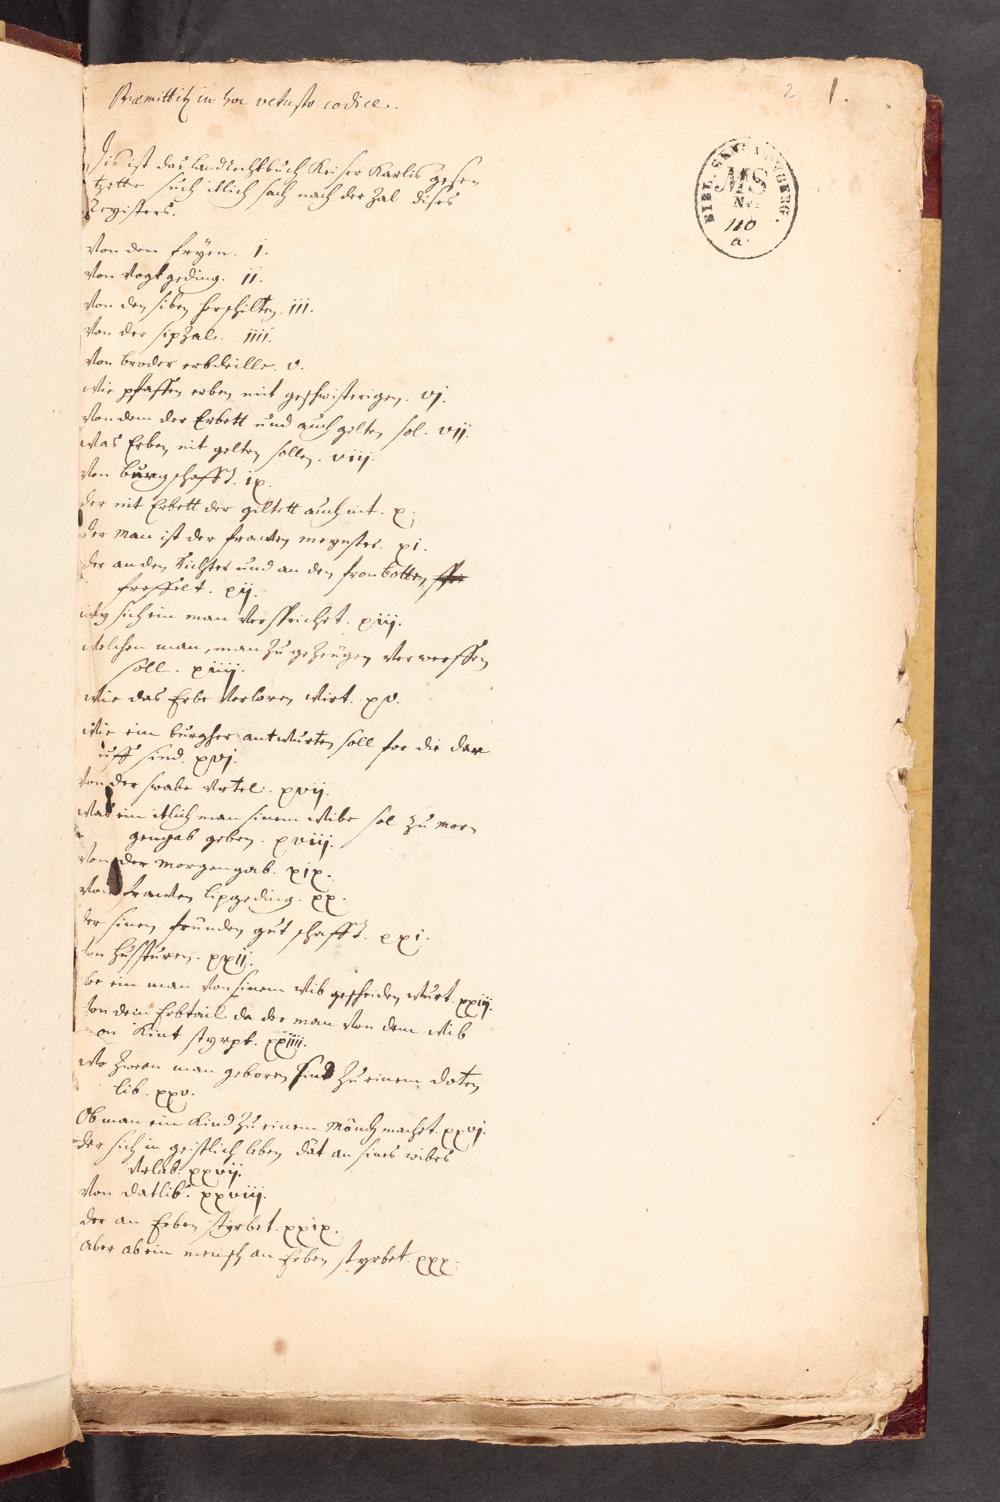 Præmittitur in hoc vetusto codice.
2 1.
BIBL. SEN: WVRTBERG.
MS
N.
110
a.
Dis ist das Landrechtbuch Keiser Karlis gesen
Hette such itlich sach nach der Zal dises
Registers.
Von den fryen. i.
Von Vogtgeding. ii.
Von den siben herschilten iii.
Von der sipZal. iiii.
Von bruder erbdeille. v.
Wie pfaffen erben mit geschwisterigen. vj.
Von dem der Erbett und auch gelten sol. vij.
Was Erben nit gelten sollen. viij.
Von burgschafft. ix.
Der nit Erbett der giltett auch nit. x.
Der Man ist der frawen meynster. xi.
Der an den Richter und an den fronbotten
freffelt. xij.
sich ein man versprichet. xiij.
Welchen man, man Zu geZeugen verwerffen
soll. xiiij.
Wie das Erbe verloren wirt. xv.
Wie ein burgher antwurten soll for die dar
uff sind. xvj.
Von der swabe vrtel. xvij.
Was ein itlich man sinem wibe sol Zu mor
gengab geben. xviij.
Von der Morgengab. xix.
Von frawen lipgeding. xx.
Der sinen frunden gut schafft. xxi.
Von hussturen. xxij.
be ein man von sinem Wib gescheiden wurt. xxiij.
Von dem Erbtail da der man von dem Wib
on Kint styrpt. xxiiij.
Wo Zwen man geboren sind Zu einem doten
lib. xxv.
Ob man ein Kind Zu einem Mönch machet. xxvj.
Der sich in geistlich leben dät an sines wibes
Vrlab. xxvij.
Von datlib. xxviij.
Der an Erben styrbet. xxix.
Aber ob ein mensch an Erben styrbet. xxx.